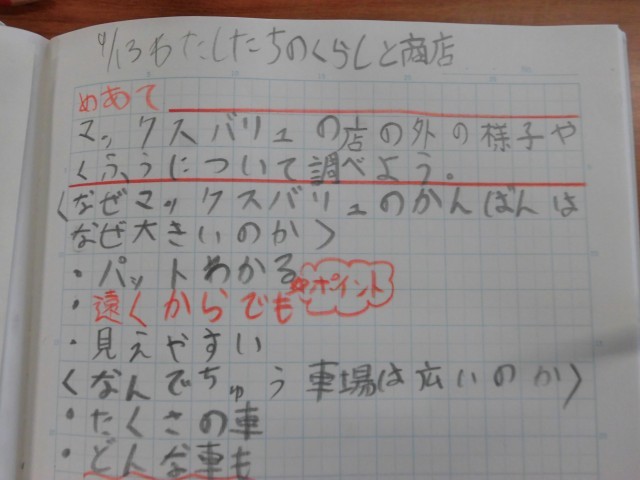 9/13わたしたちのくらしと商店
めあて
マックスバリュの店の外の様子や
くふうについて調べよう。
〈なぜマックスバリュのかんばんは
なぜ大きいのか〉
・パットわかる
・遠くからでも ☆ポイント
・見えやすい
〈なんでちゅう車場は広いのか〉
・たくさの車
・どんな車も